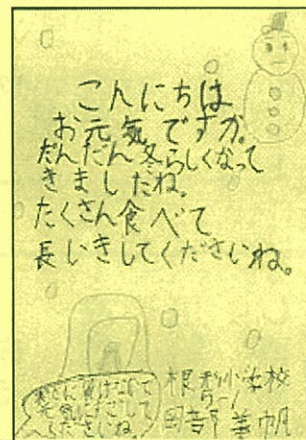 こんにちは
お元気ですか。
だんだん冬らしくなって
きましたね。
たくさん食べて
長いきしてくださいね。
寒さに負けないで
元気にすごして
くださいね!
小学校